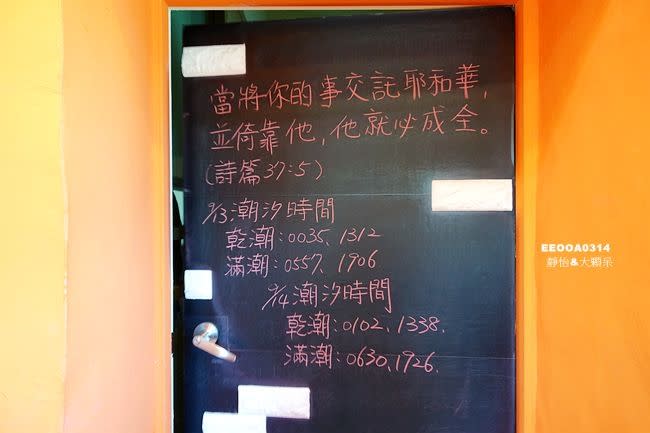 當將你的事交託耶和華,
並倚靠他,他就必成全。
(詩篇37:5)
9/13潮汐時間
乾潮:0035、1312
滿潮:0557、1906
9/14潮汐時間
乾潮:0102、1338.
滿潮:0630、1926.
EEOOA0314
靜怡&大顆呆